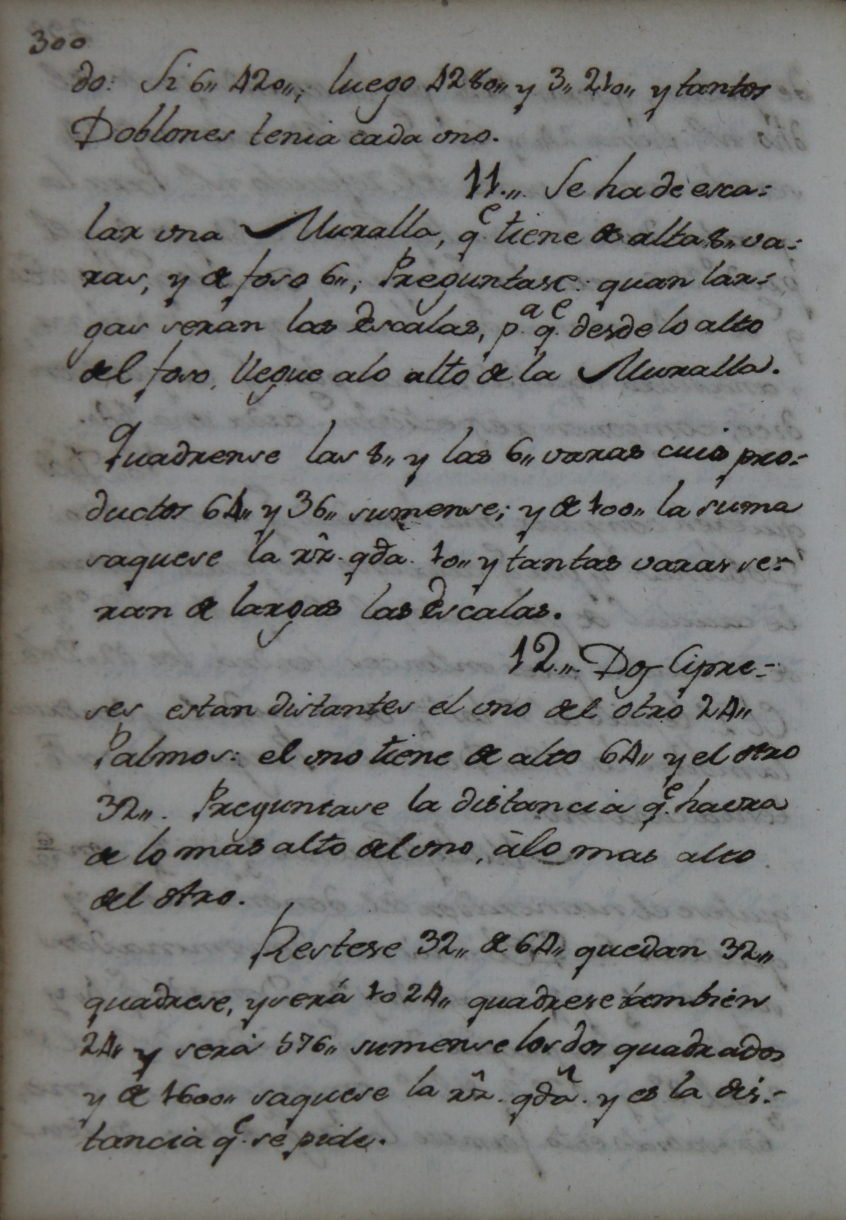 300
do: Si 6,, 420,,; luego 4280,, y 3,, 210,, y tantos
Doblones tenia cada vno.
11.,, Se ha de esca-
lar vna Muralla, q.e tiene de alta 8,, va-
ras, y de foso 6,,; Preguntase: quan lar-
gas seràn las Escalas, p.a q.e desde lo alto
del foso, llegue alo alto de la Muralla.
Quadrense las 8,, y las 6,, varas cuios pro-
ductos 64,, y 36,, sumense; y de 100,, la suma
saquese la rz. qda. 10,, y tantas varas se-
ran de largas las Escalas.
12.,, Dos Cipre-
ses estan distantes el vno del otro 24,,
Palmos: el vno tiene de alto 64,, y el otro
32,,. Preguntase la distancia q.e havra
de lo mas alto del vno, à lo mas alto
del otro.
Restese 32,, de 64,, quedan 32,,
quadrese, y será 1024,, quadrese tambien
24,, y será 576,, sumense los dos quadrados
y de 1600,, saquese la rz. qda. y es la dis-
tancia q.e se pide.